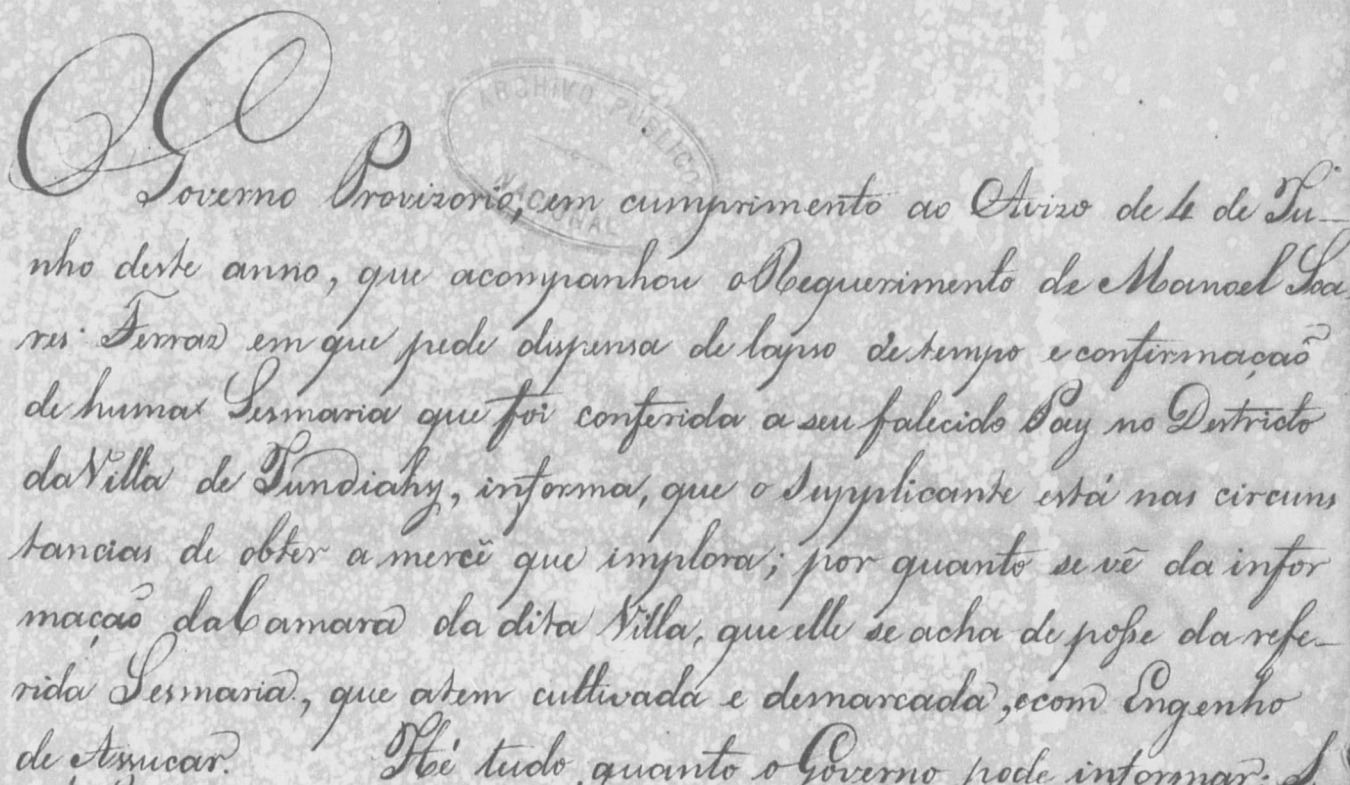 ARCHIVO PUBLICO
NACIONAL
O Governo Provizorio, em cumprimento ao Avizo de 4 de Ju-
nho deste anno, que acompanhou o Requerimento de Manoel Soa-
res Ferraz em que pede dispensa de lapso de tempo e confirmação
de huma Sesmaria que foi conferida a seu falecido Pay no Destricto
da Villa de Jundiahy, informa, que o Supplicante está nas circuns
tancias de obter a mercê que implora; por quanto se vê da infor
mação da Camara da dita Villa, que elle se acha de posse da refe-
rida Sesmaria, que a tem cultivada e demarcada, e com Engenho
de Assucar. Hé tudo quanto o Governo pode informar. S.